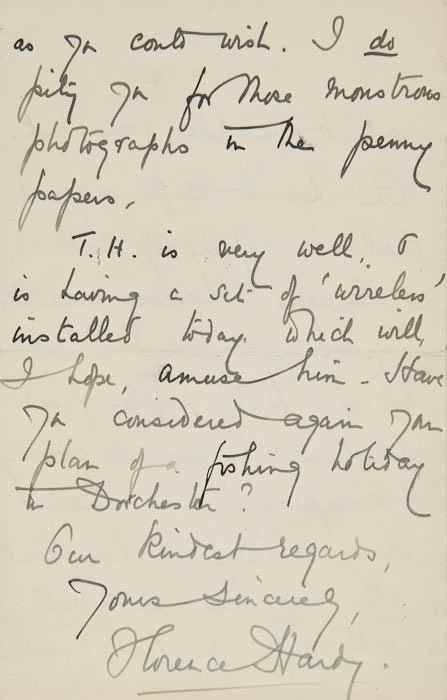 as you could wish. I do
pity you for those monstrous
photographs in the penny
papers.
T.H. is very well, &
is having a set of 'wireless'
installed today. Which will,
I hope, amuse him - Have
you considered again your
plan of a fishing holiday
in Dorchester?
Our kindest regards,
Yours sincerely,
Florence Hardy.